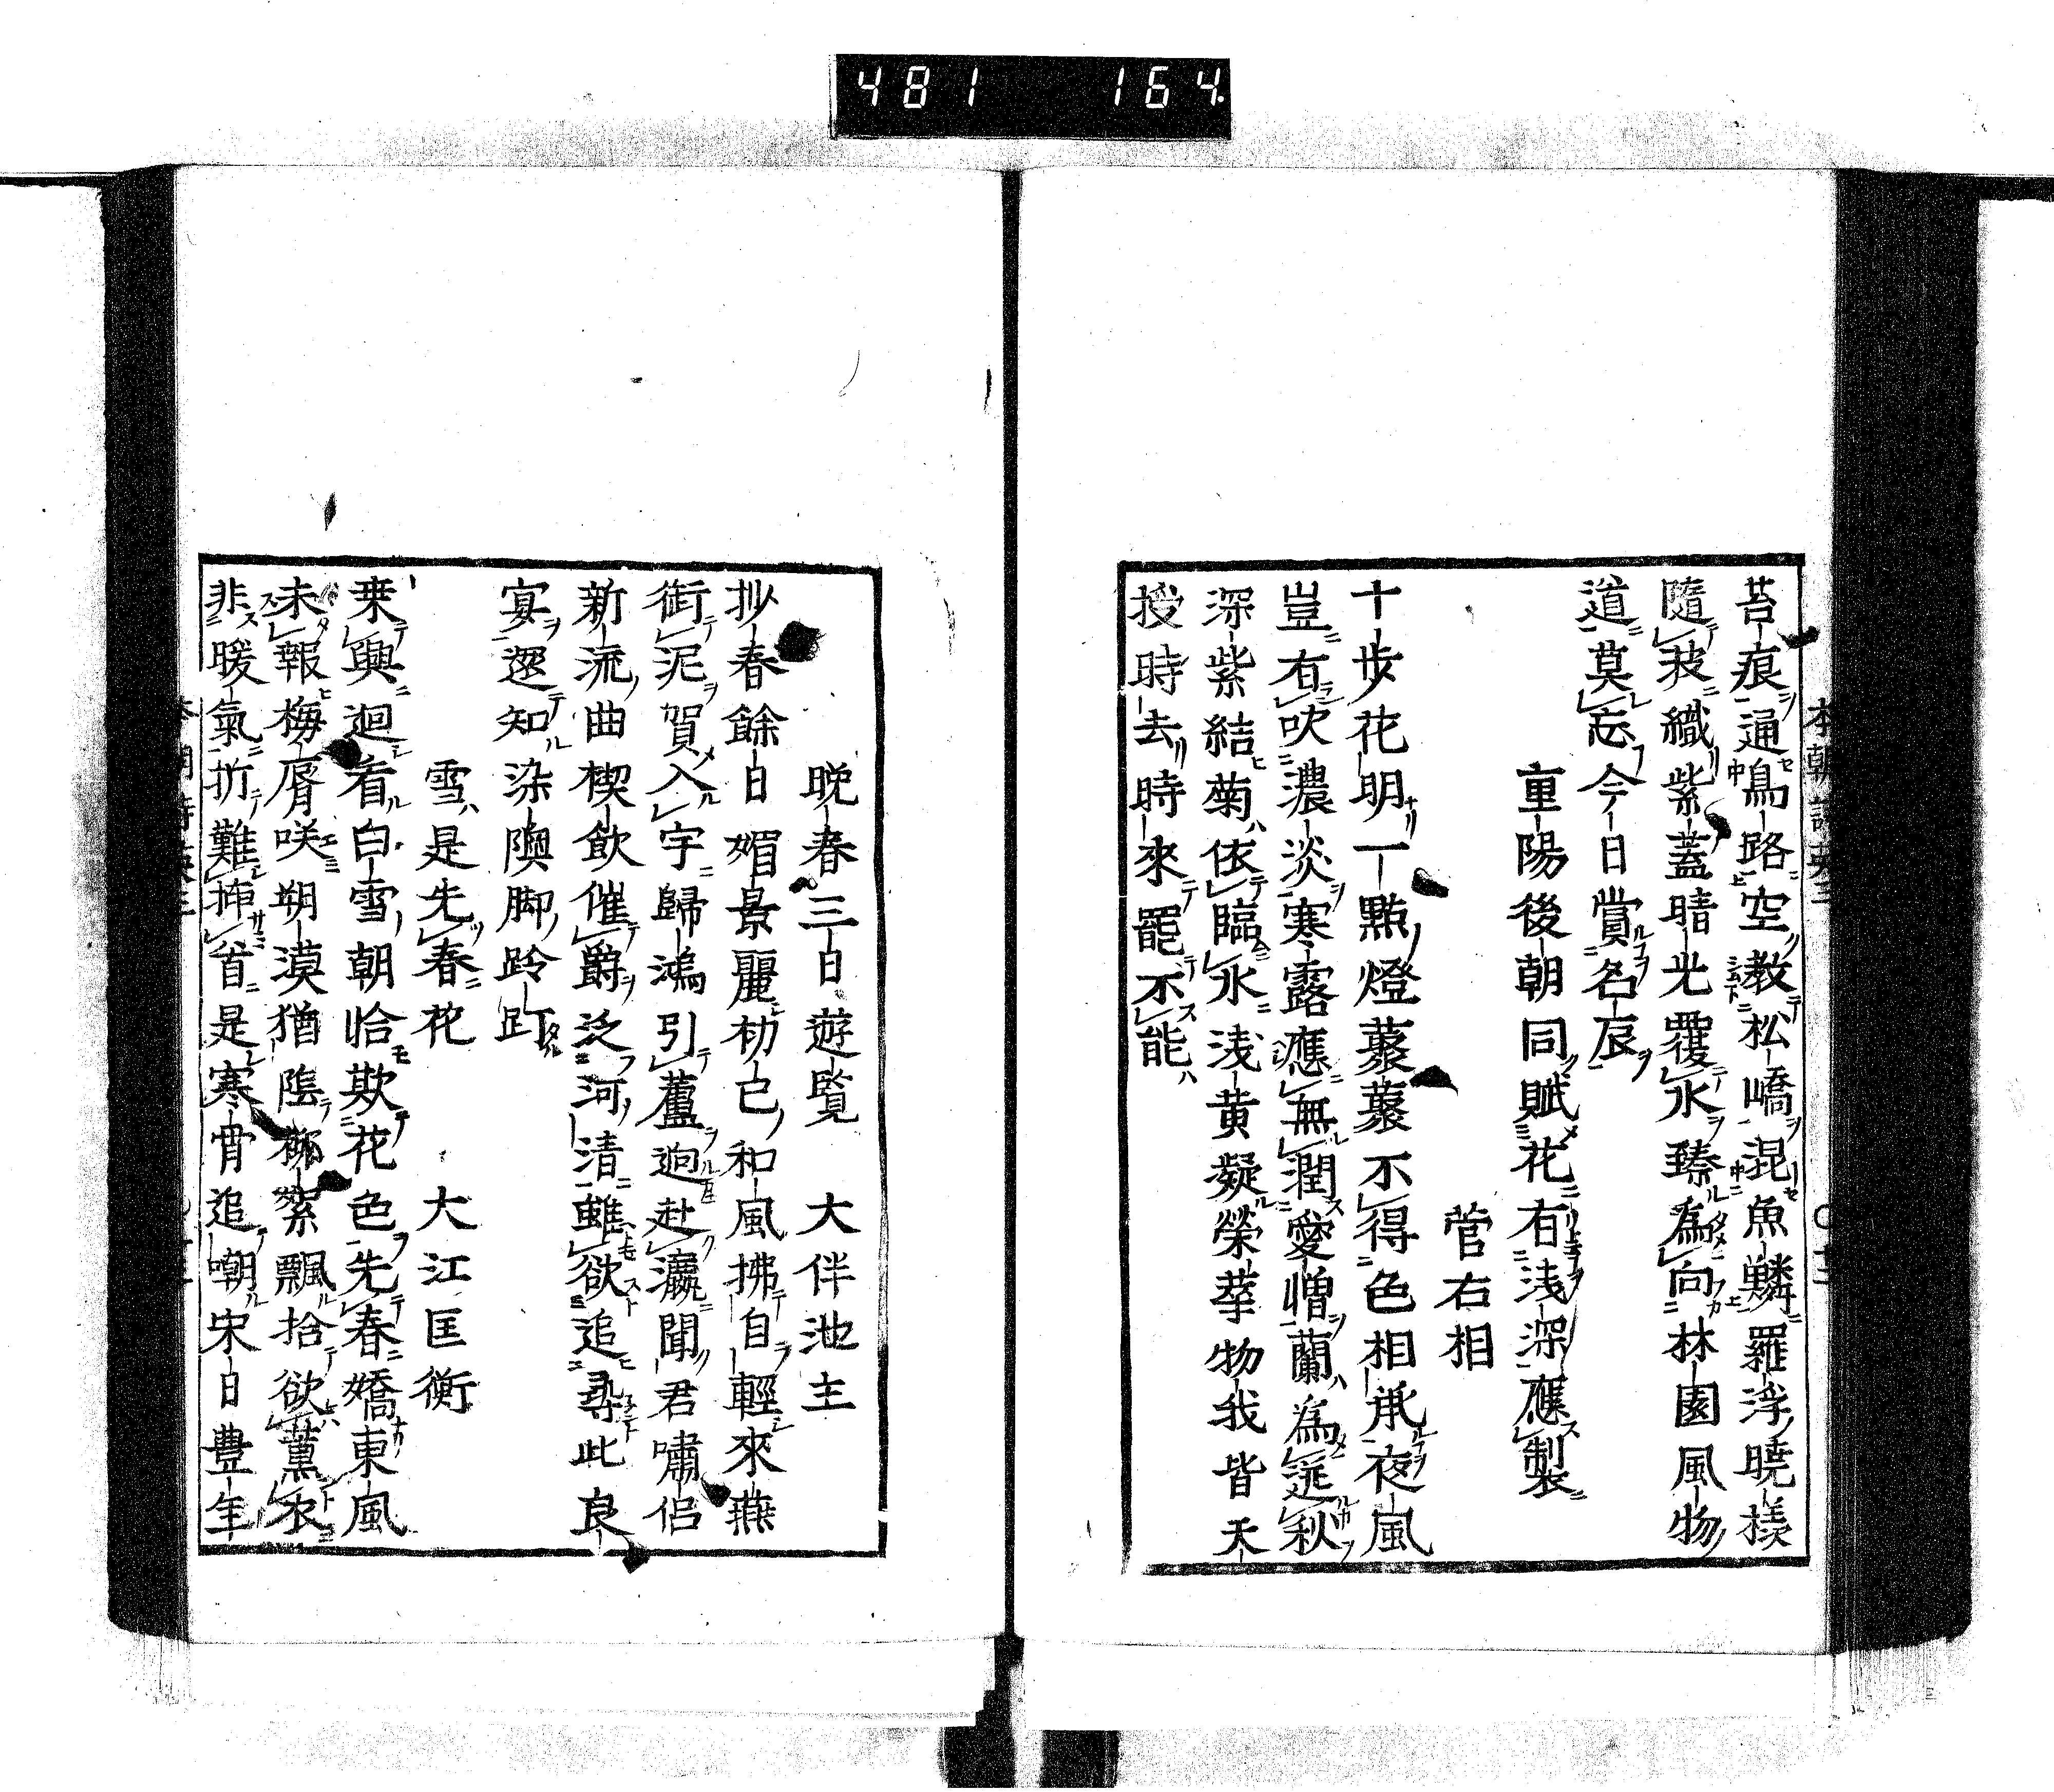 481 164
苔痕通鳥路空教松嶠混魚鱗羅浮曉様
隨𬇙織紫蓋晴光覆水臻為向林園風物
道莫忘今日賞名辰
重陽後朝同賦花有浅深應製
菅右相
十歩花明一點燈藂藂不得色相承夜風
豈有吹濃淡寒露應無潤愛憎蘭為送秋
深紫結菊依臨水浅黄凝榮華物我皆天
授時去時來罷不能
晩春三日遊覧 大伴池主
抄春餘日媚景麗初已和風拂自輕來燕
銜泥賀入宇歸鴻引蘆逈赴瀛聞君嘯侶
新流曲禊飲催爵泛河清雖欲追尋此良
宴還知染隩脚跉𨀉
雪是先春花 大江匡衡
乗興迴看白雪朝恰欺花色先春嬌東風
未報梅脣咲朔漠猶陰柳絮飄拾欲薫衣
非暖氣折難挿首是寒宵追嘲宋日豊年